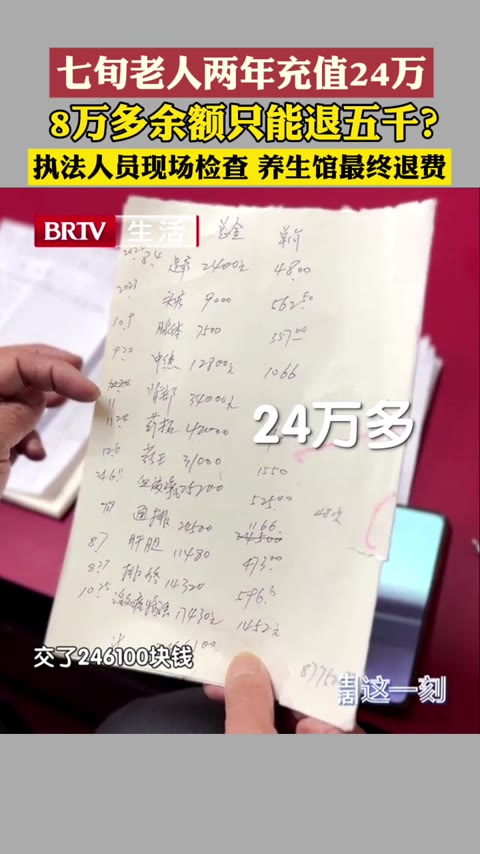 七旬老人两年充值24万
8万多余额只能退五千?
执法人员现场检查 养生馆最终退费
BRTV 生活
总金 单价
8.4 2400元 48.00
2023 头疗 9000 562.50
10.9 腺体 7500 357.00
9.22 中焦 12800元 1066
11 背部 34000元
11.28 药拓 42000
24万多
12.6 31000 1550
24.6 25200 525.00 48次
通排 24500 1166
8.7 肝胆 11480 473.00
8.27 排 14320 596.6
10.25 17430元 1452元
交了246100块钱
生活这一刻